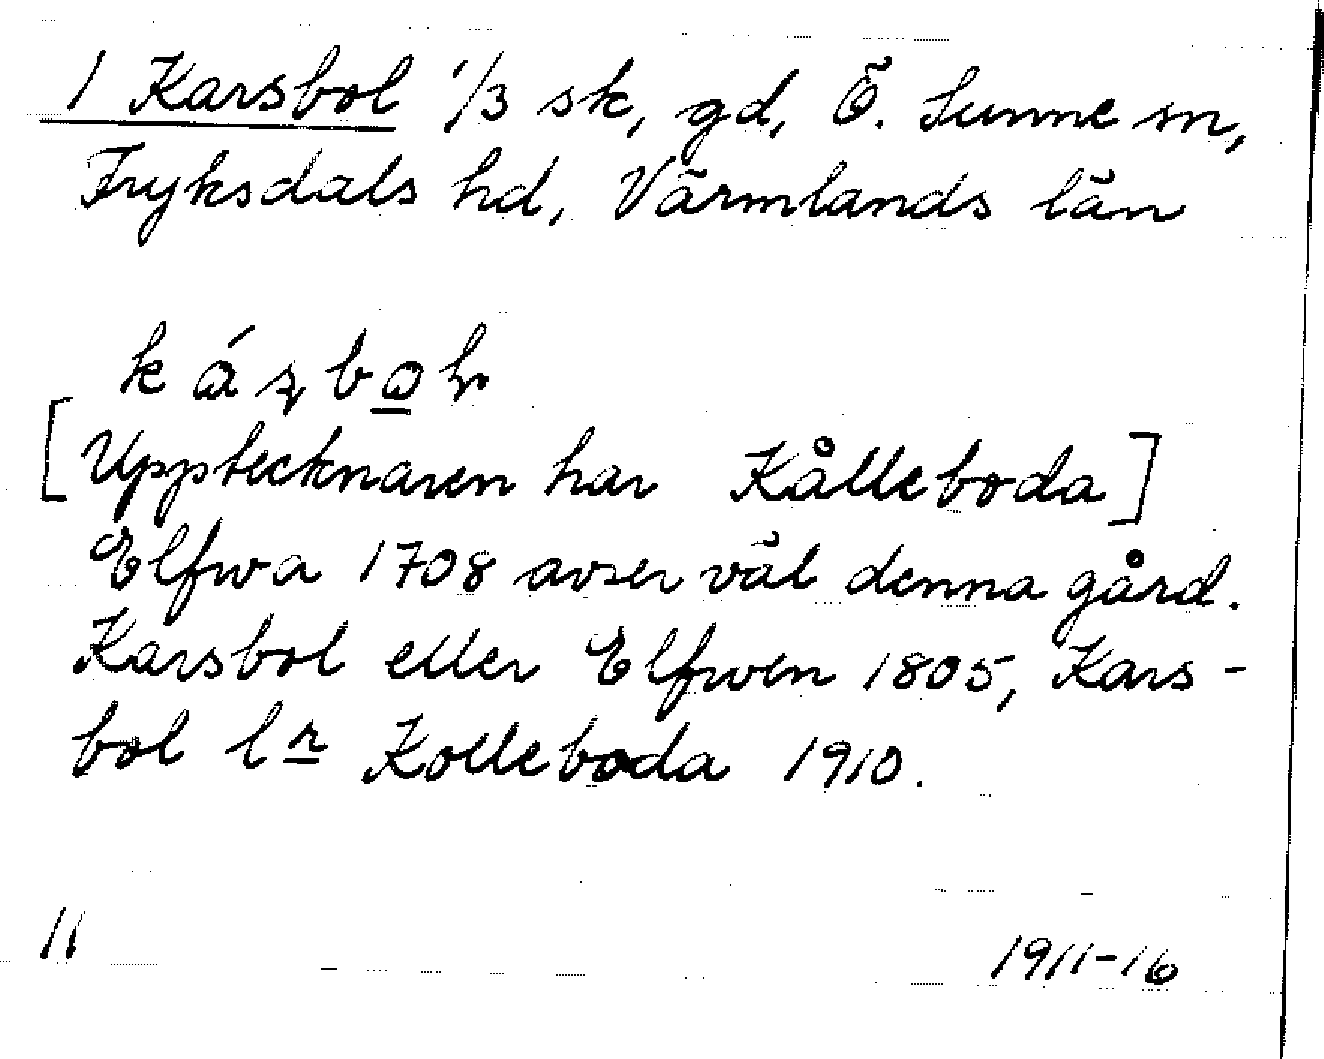 1 Karsbol 1/3 sk, gd, Ö. Sunne sn,
Fryksdals hd, Värmlands län
[Upptecknaren har Kålleboda]
Elfwa 1708 avser väl denna gård.
Karsbol eller Elfwen 1805, Kars-
bol lr Kolleboda 1910.
11
1911-16